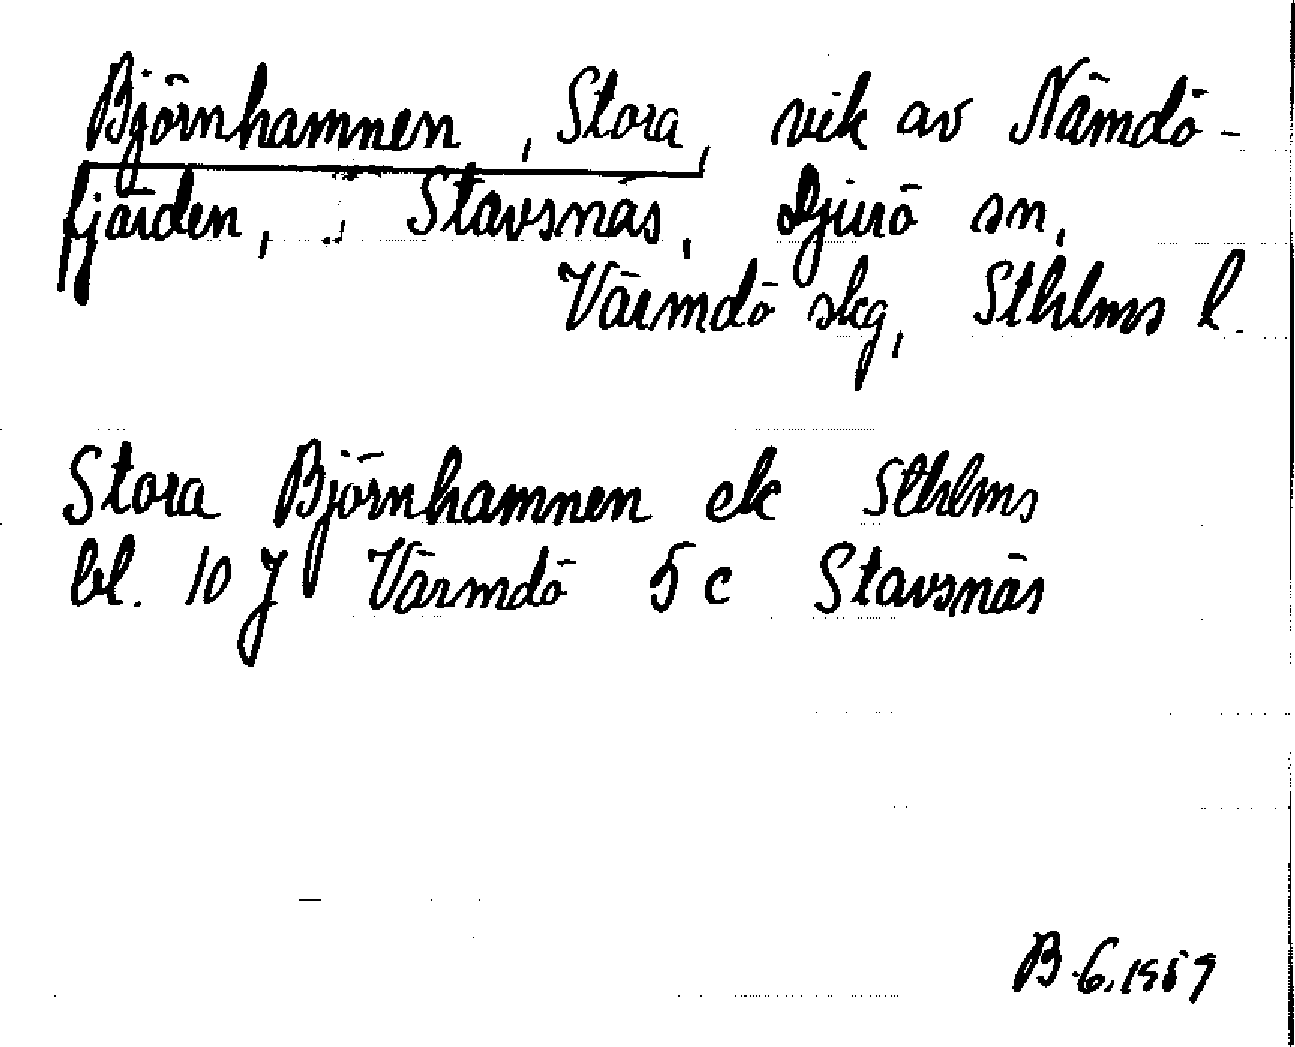 Björnhamnen, Stora, vik av Nämdö-
fjärden, Stavsnäs, Djurö sn,
Värmdö skg, Sthlms l.
Stora Björnhamnen ek Sthlms
bl. 10 J Värmdö 5 c Stavsnäs
B 6.1959